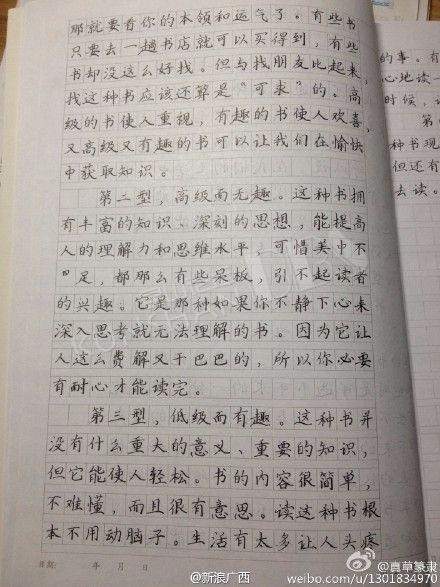 那就要看你的本领和运气了。有些书
只要去一趟书店就可以买得到，有些
书却没这么好找。但与找朋友比起来，
找这种书应该还算是“可求”的。高
级的书使人重视，有趣的书使人欢喜，
又高级又有趣的书可以让我们在愉快
中获取知识。
第二型，高级而无趣。这种书拥
有丰富的知识、深刻的思想，能提高
人的理解力和思维水平，可惜美中不
足，都那么有些呆板，引不起读者
的兴趣。它是那种如果你不静下心来
深入思考就无法理解的书。因为它让
人这么费解又干巴巴的，所以你必要
有耐心才能读完。
第三型，低级而有趣。这种书并
没有什么重大的意义、重要的知识，
但它能使人轻松。书的内容很简单，
不难懂，而且很有意思。读这种书根
本不用动脑子。生活有太多让人头疼
日期： 年 月 日
的事。有
心地读
时候，
第
种书现
但还有
去读。
@新浪广西
@真草篆隶
weibo.com/u/1301834970